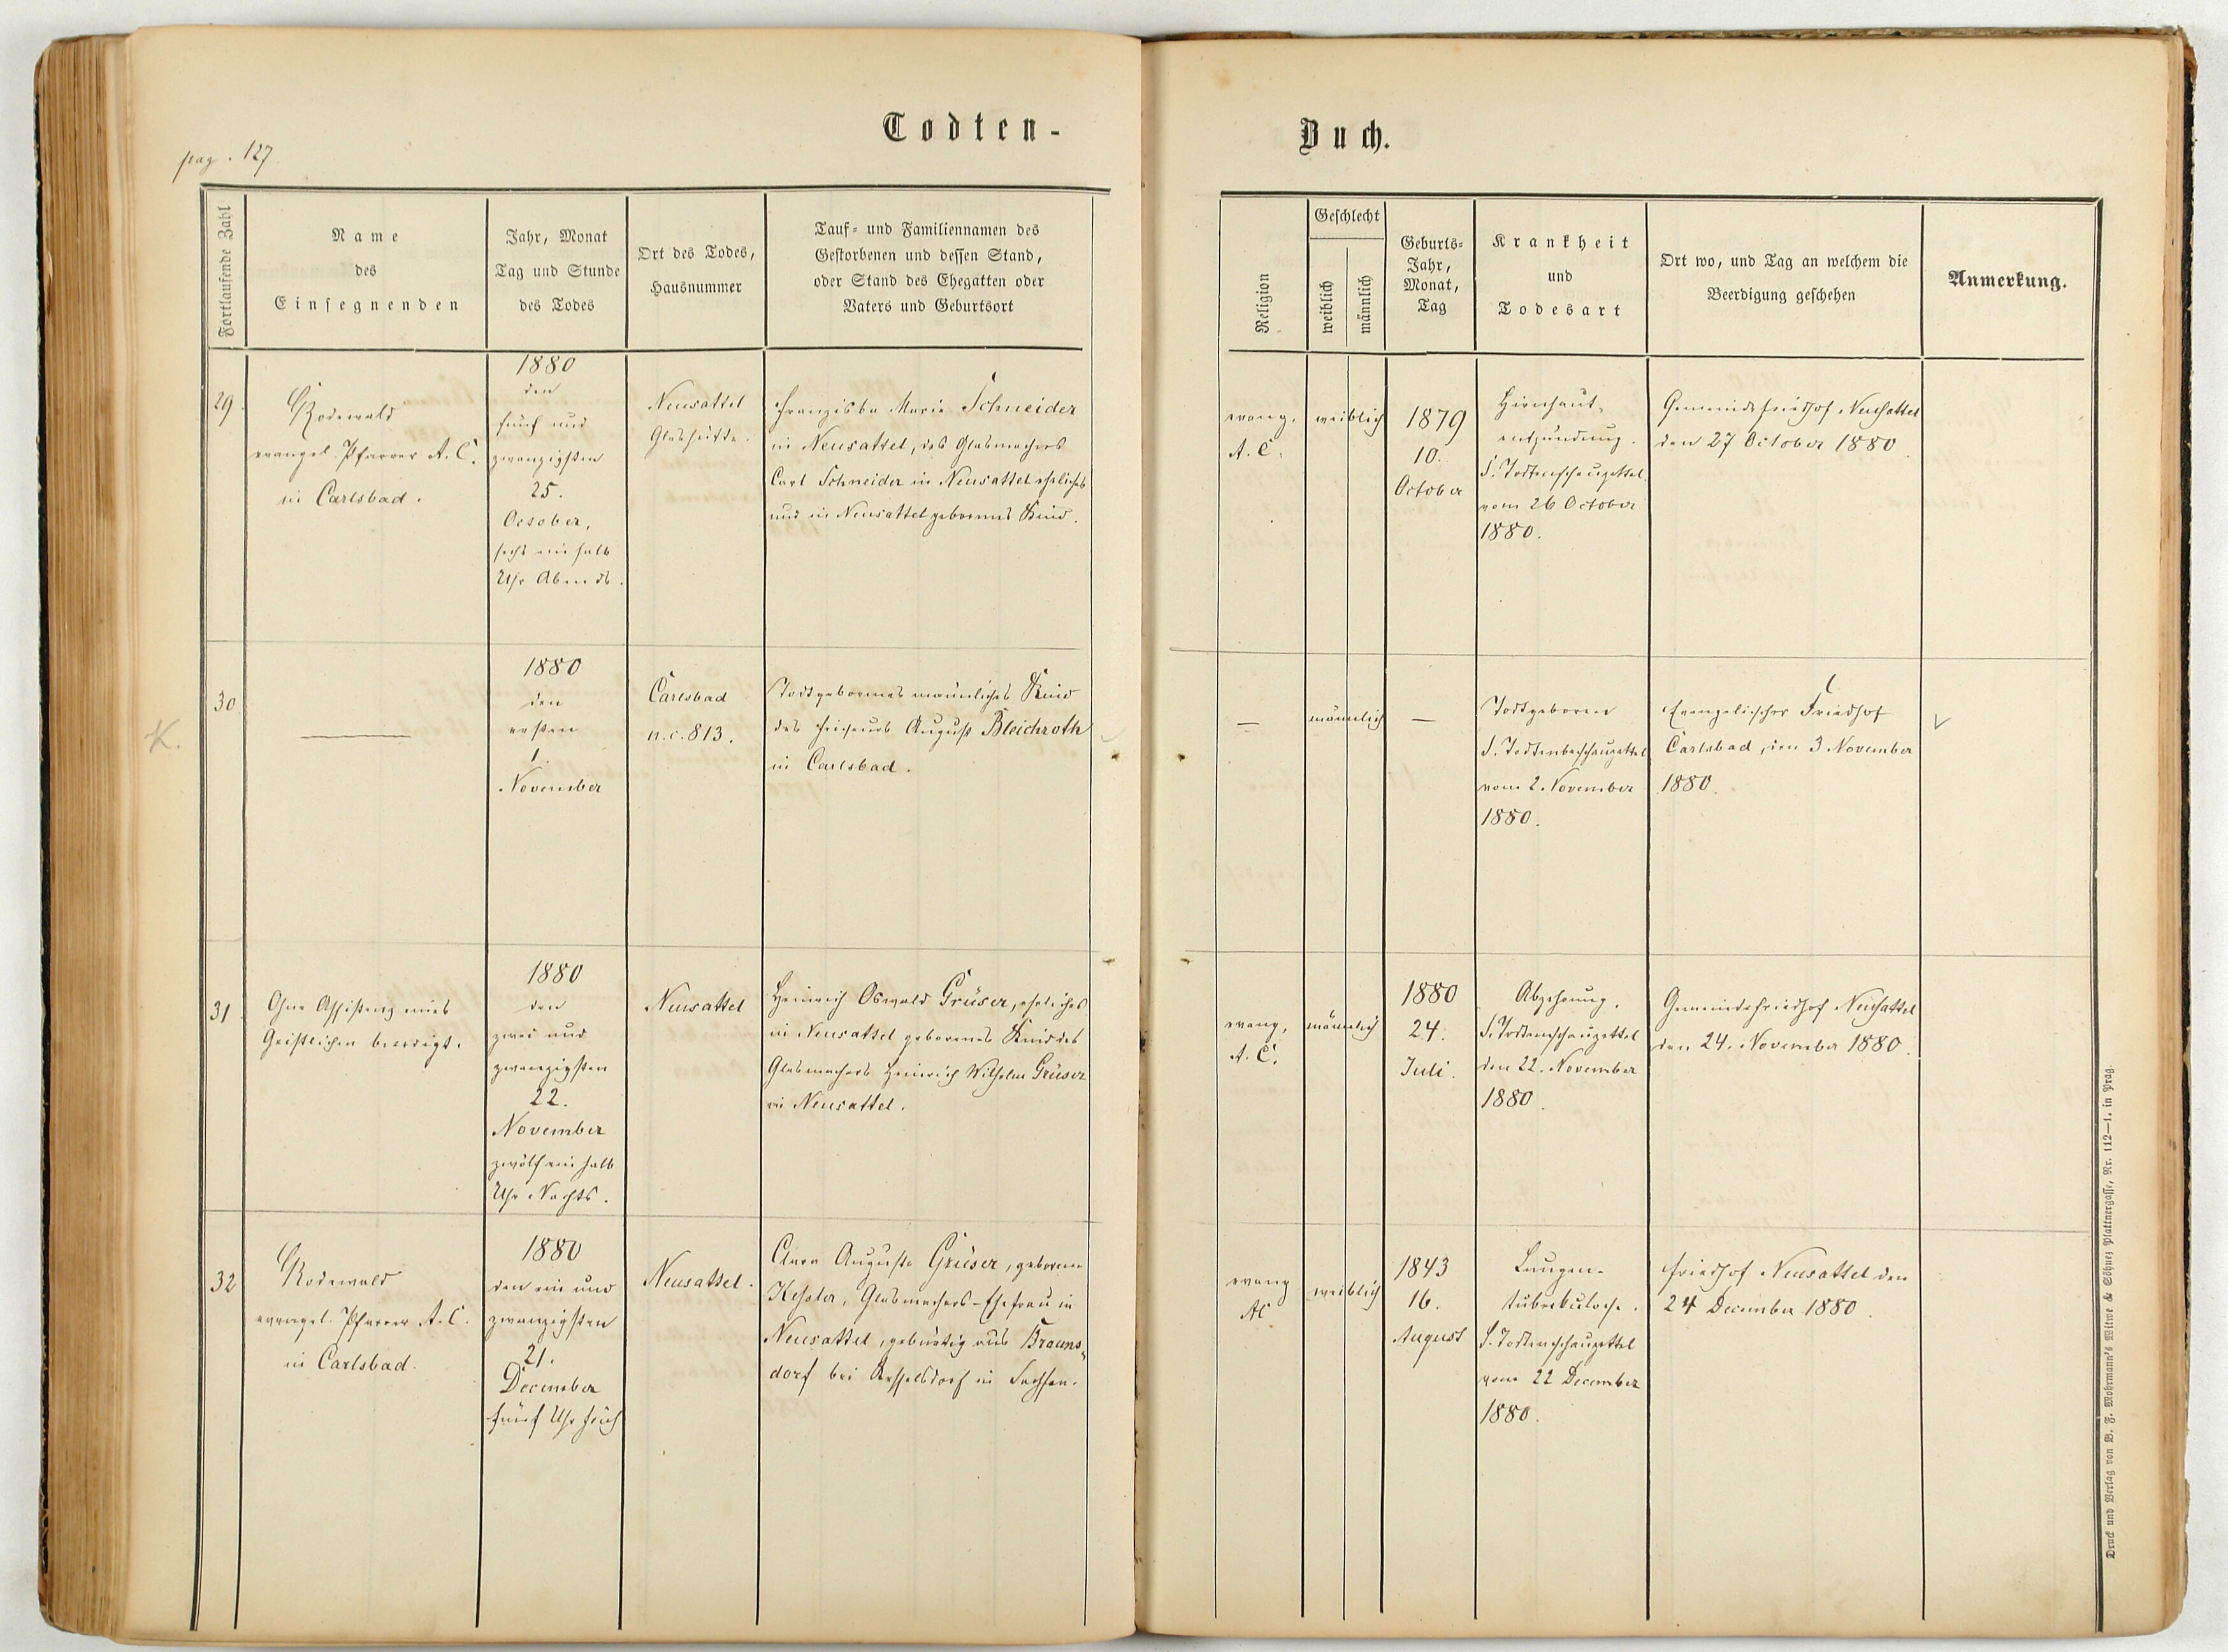 pag. 127.
Todten-
Buch.
Fortlaufende Zahl
Name
des
Einsegnenden
Jahr, Monat
Tag und Stunde
des Todes
Ort des Todes,
Hausnummer
Tauf- und Familiennamen des
Gestorbenen und dessen Stand,
oder Stand des Ehegatten oder
Vaters und Geburtsort
Religion
Geschlecht
weiblich
männlich
Geburts-
Jahr,
Monat,
Tag
Krankheit
und
Todesart
Ort wo, und Tag an welchem die
Beerdigung geschehen
Anmerkung.
29
Rodewald
evangel. Pfarrer A. C.
in Carlsbad.
1880
den
fünf und
zwanzigsten
25.
October,
sechs ein halb
Uhr Abends.
Neusattel
Glashütte.
Franziska Marie Schneider
in Neusattel, des Glasmachers
Carl Schneider in Neusattel eheliches
und in Neusattel geborenes Kind.
evang.
A. C.
weiblich
1879
10.
October
Hirnhaut-
entzündung.
S. Todtenschauzettel
vom 26 October
1880.
Gemeindefriedhof Neusattel
den 27 October 1880
30
K.
1880
den
ersten
1.
November
Carlsbad
n. c. 813.
Todtgeborenes männliches Kind
des Friseurs August Bleichroth
in Carlsbad.
—
männlich
—
Todtgeboren
S. Todtenbeschauzettel
vom 2. November
1880.
Evangelischer Friedhof
Carlsbad, den 3 November
1880.
31
Ohne Assistenz eines
Geistlichen beerdigt.
1880
den
zwei und
zwanzigsten
22.
November
zwölf ein halb
Uhr Nachts.
Neusattel
Heinrich Oswald Grüser, eheliches
in Neusattel geborenes Kind des
Glasmachers Heinrich Wilhelm Grüser
in Neusattel.
evang.
A. C.
männlich
1880
24.
Juli.
Abzehrung.
S. Todtenschauzettel
den 22. November
1880.
Gemeindefriedhof Neusattel
den 24. November 1880.
32
Rodewald
evangel. Pfarrer A. C.
in Carlsbad.
1880
den ein und
zwanzigsten
21.
December
fünf Uhr früh
Neusattel.
Clara Auguste Grüser, geborene
Kessler, Glasmachers-Ehefrau in
Neusattel, gebürtig aus Brauns-
dorf bei in Sachsen.
evang
AC
weiblich
1843
16.
August
Lungen-
tuberkulose.
S. Todtenschauzettel
vom 22 December
1880.
Friedhof Neusattel den
24 December 1880.
Druck und Verlag von B. F. Mohrmann's Witwe & Söhne, Plattnergasse, Nr. 112—1. in Prag.